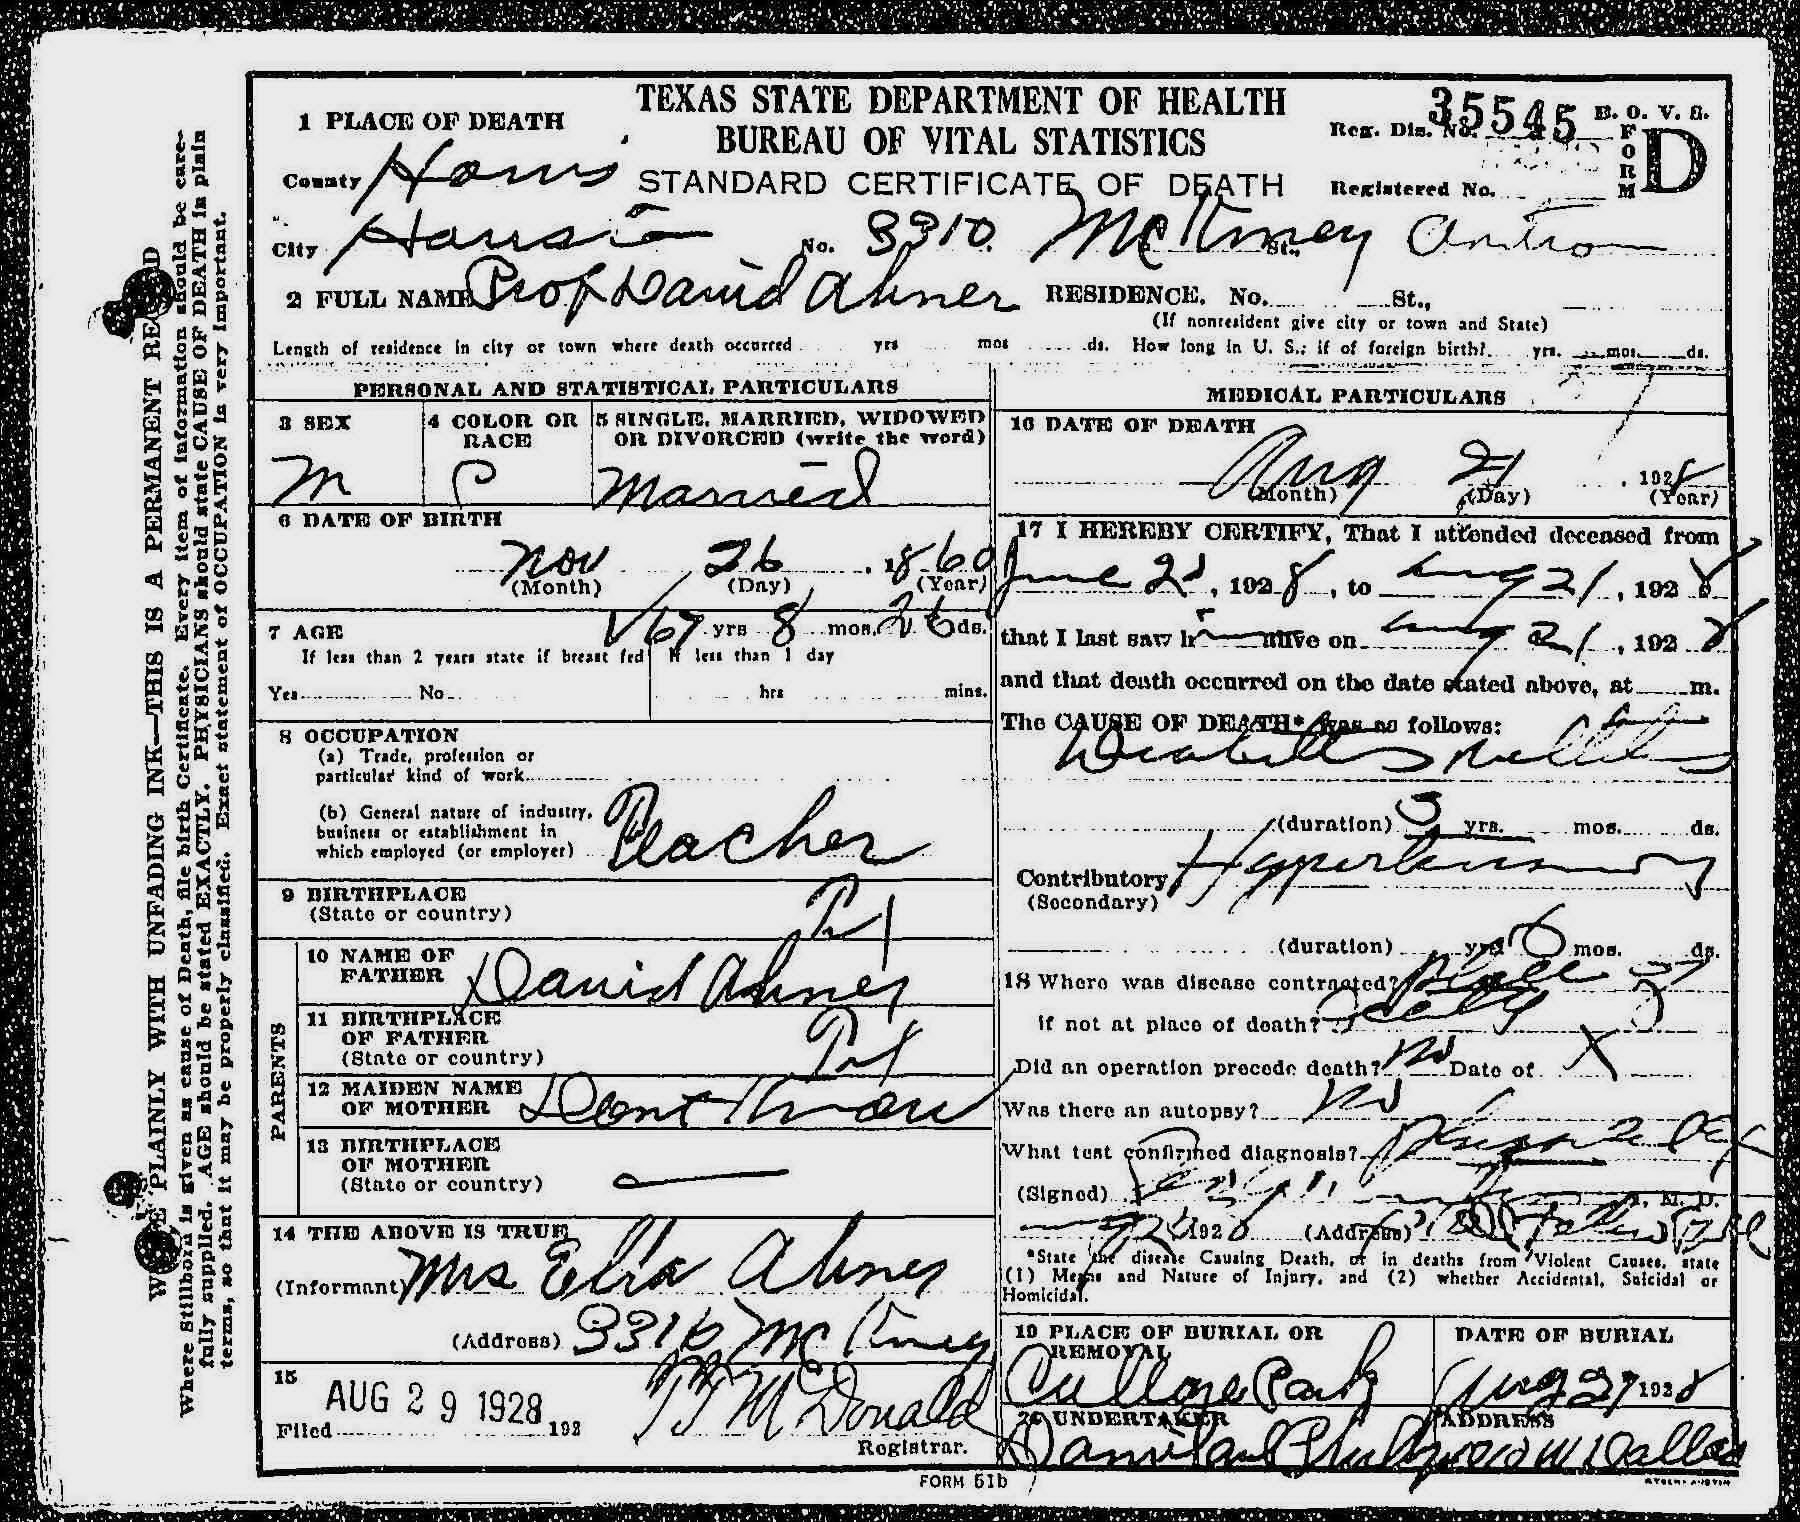 TEXAS STATE DEPARTMENT OF HEALTH
BUREAU OF VITAL STATISTICS
STANDARD CERTIFICATE OF DEATH
35545 B. O. V. S.
Reg. Dis. No.
FORM D
Registered No.
1 PLACE OF DEATH
County Harris
City No. 3310 McKinney St.,
2 FULL NAME Prof David Abner RESIDENCE. No. St.,
(If nonresident give city or town and State)
Length of residence in city or town where death occurred yrs mos ds. How long in U. S.; if of foreign birth? yrs. mos. ds.
PERSONAL AND STATISTICAL PARTICULARS
3 SEX
M
4 COLOR OR RACE
C
5 SINGLE, MARRIED, WIDOWED
OR DIVORCED (write the word)
Married
6 DATE OF BIRTH
Nov 26, 1860
(Month) (Day) (Year)
7 AGE 67 yrs 8 mos. 26 ds.
If less than 2 years state if breast fed If less than 1 day
Yes No hrs mins.
8 OCCUPATION
(a) Trade, profession or
particular kind of work
(b) General nature of industry,
business or establishment in
which employed (or employer) Teacher
9 BIRTHPLACE
(State or country)
PARENTS
10 NAME OF
FATHER David Abner
11 BIRTHPLACE
OF FATHER
(State or country)
12 MAIDEN NAME
OF MOTHER Dont Know
13 BIRTHPLACE
OF MOTHER
(State or country)
14 THE ABOVE IS TRUE
(Informant) Mrs Ella Abner
(Address) 3316 McKinney
15
Filed AUG 29 1928 192
McDonald
Registrar.
MEDICAL PARTICULARS
16 DATE OF DEATH
Aug 21, 1928
(Month) (Day) (Year)
17 I HEREBY CERTIFY, That I attended deceased from
June 2, 1928, to Aug 21, 1928
that I last saw him alive on Aug 21, 1928
and that death occurred on the date stated above, at m.
The CAUSE OF DEATH* was as follows:
Diabetes Mellitus
(duration) 3 yrs. mos. ds.
Contributory Hypertension
(Secondary)
(duration) yrs 6 mos. ds.
18 Where was disease contracted? place of
if not at place of death? death
Did an operation precede death? no Date of X
Was there an autopsy? no
What test confirmed diagnosis?
(Signed) M. D.
192 (Address)
*State the disease Causing Death, or in deaths from Violent Causes, state
(1) Means and Nature of Injury, and (2) whether Accidental, Suicidal or
Homicidal.
19 PLACE OF BURIAL OR
REMOVAL
College Park
DATE OF BURIAL
Aug 27 1928
20 UNDERTAKER
ADDRESS
Dallas
FORM 51b
WRITE PLAINLY WITH UNFADING INK—THIS IS A PERMANENT RECORD
Where Stillborn is given as cause of Death, file birth Certificate. Every item of information should be care-
fully supplied. AGE should be stated EXACTLY. PHYSICIANS should state CAUSE OF DEATH in plain
terms, so that it may be properly classified. Exact statement of OCCUPATION is very important.